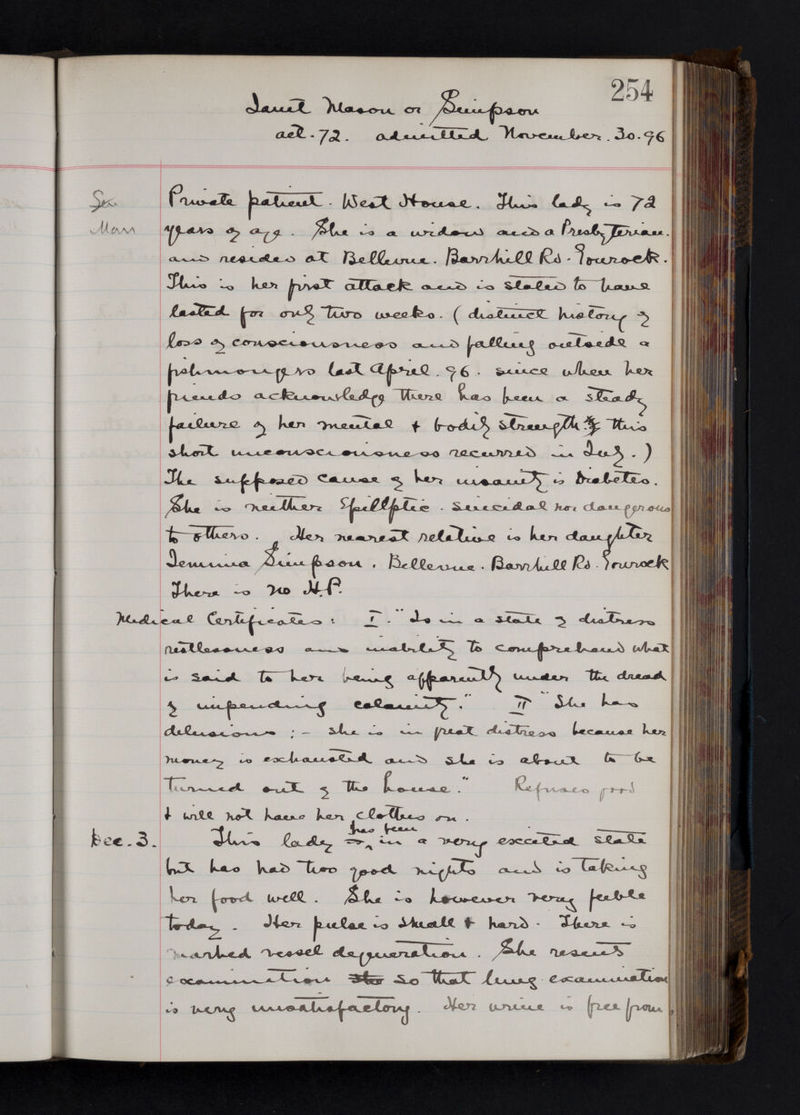 254
Janet Mason or Simpson
aet. 72. admitted November. 30. 96
Private patient. West House. This lady is 72
years of age. She is a widow and a Presbyterian.
and resides at Bellevue. Barrhill Rd. Gourock.
This is her first attack and is stated to have
lasted for only two weeks. (distinct history of
loss of consciousness and falling outside a
fishmongers last April. 96. since when her
friends acknowledge there has been a steady
failure of her mental & bodily strength this
short unconsciousness recurred in July.)
The supposed cause of her insanity is Diabetes.
She is neither Epilleptic. suicidal nor dangerous
to others. Her nearest relative is her daughter
Jemima Simpson. Bellevue. Barrhill Rd. Gourock
There is no H.P.
Medical Certificates: I. "Is in a state of distress
restlessness and inability to comprehend what
is said to her being apparently under the dread
of impending calamity." II "She has
delusions :- she is in great distress because her
money is exhausted and she is about to be
turned out of the house." Refuses food
& will not have her clothes on.
Dec. 3. This lady has been in a very excited state
but has had two good nights and is taking
her food well. She is however very feeble
today. Her pulse is small & hard. There is
marked vessel degeneration. She resents
examination so that lung examination
is very unsatisfactory. Her urine is free from